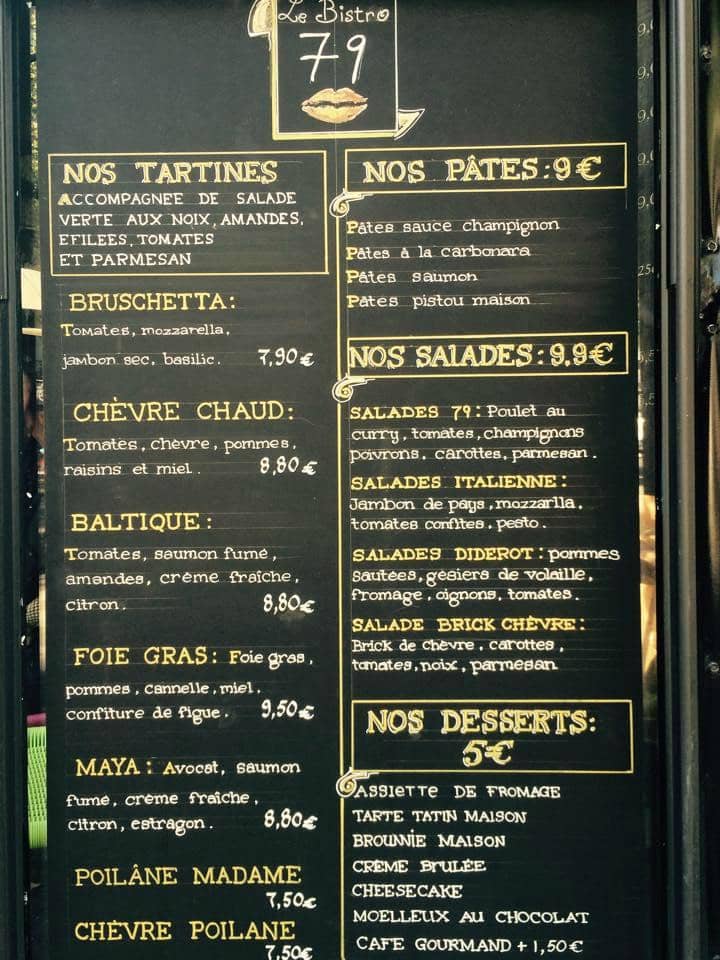 Le Bistro
79
NOS TARTINES
ACCOMPAGNEE DE SALADE
VERTE AUX NOIX, AMANDES,
EFILEES, TOMATES
ET PARMESAN
BRUSCHETTA:
Tomates, mozzarella,
jambon sec, basilic. 7,90€
CHÈVRE CHAUD:
Tomates, chèvre, pommes,
raisins et miel. 8,80€
BALTIQUE:
Tomates, saumon fumé,
amandes, crème fraîche,
citron. 8,80€
FOIE GRAS: Foie gras,
pommes, cannelle, miel,
confiture de figue. 9,50€
MAYA: Avocat, saumon
fumé, crème fraîche,
citron, estragon. 8,80€
POILÂNE MADAME
7,50€
CHÈVRE POILANE
7,50€
NOS PÂTES: 9€
Pâtes sauce champignon
Pâtes à la carbonara
Pâtes saumon
Pâtes pistou maison
NOS SALADES: 9.9€
SALADES 79: Poulet au
curry, tomates, champignons
poivrons, carottes, parmesan.
SALADES ITALIENNE:
Jambon de pays, mozzarlla,
tomates confites, pesto.
SALADES DIDEROT: pommes
sautées, gésiers de volaille,
fromage, oignons, tomates.
SALADE BRICK CHÈVRE:
Brick de chèvre, carottes,
tomates, noix, parmesan
NOS DESSERTS:
5€
ASSIETTE DE FROMAGE
TARTE TATIN MAISON
BROWNIE MAISON
CRÈME BRULÉE
CHEESECAKE
MOELLEUX AU CHOCOLAT
CAFE GOURMAND + 1,50€